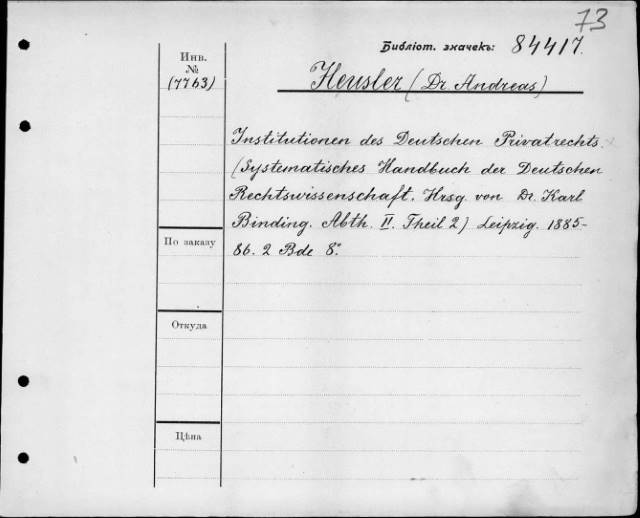 73
Библіот. значекъ: 84417.
Инв.
№
(7763)
Heusler (Dr. Andreas)
Institutionen des Deutschen Privatrechts.
(Systematisches Handbuch der Deutschen
Rechtswissenschaft. Hrsg. von Dr. Karl
Binding. Abth. II. Theil 2) Leipzig. 1885-
86. 2 Bde 8°.
По заказу
Откуда
Цѣна